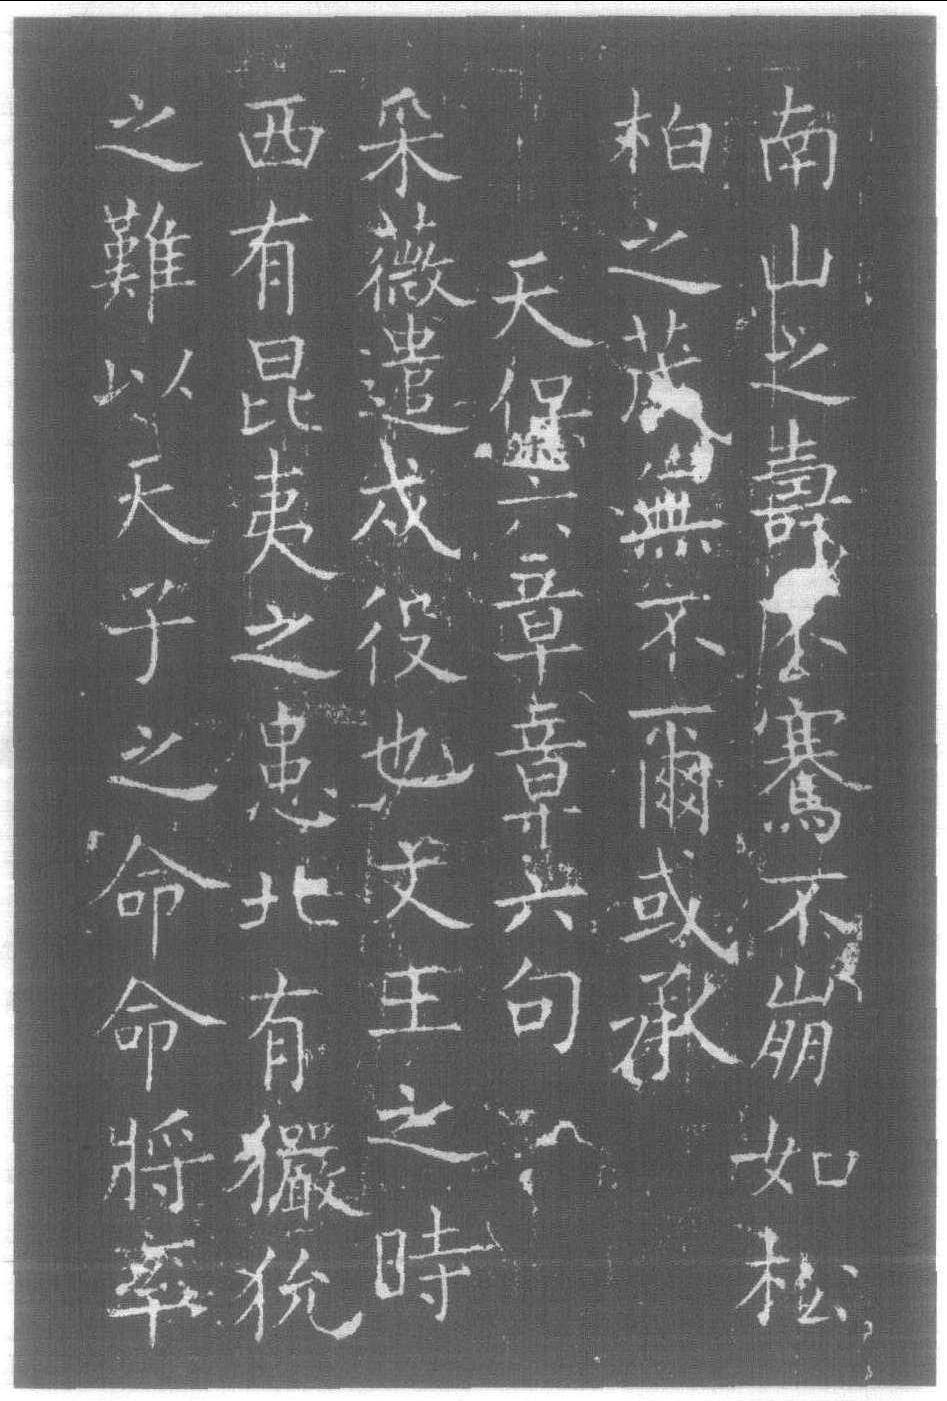 南山之壽不騫不崩如松
柏之茂無不爾或承
天保六章章六句
采薇遣戍役也文王之時
西有昆夷之患北有玁狁
之難以天子之命命將率